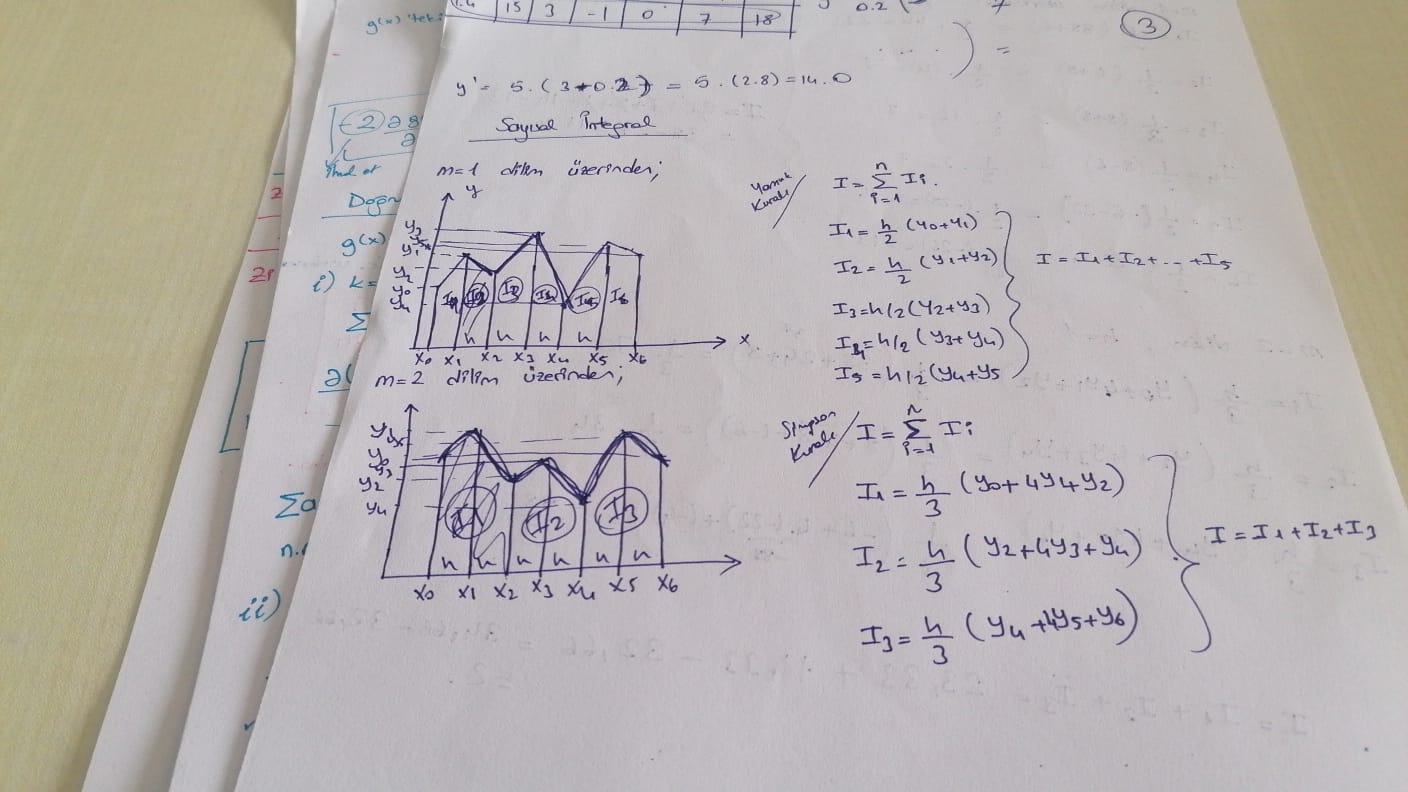 15 3 -1 0 7 18
0.2
3
g(x)
y' = 5.(3+0.2) = 5.(2.8)=14.0
Sayısal İntegral
m=1 dilim üzerinden;
y
y1
y2
y0
y4
I2 I3 I4 I5 I6
h h h h
x0 x1 x2 x3 x4 x5 x6
x
Yamuk Kuralı
I = n Σ i=1 Ii.
I1 = h/2 (y0+y1)
I2 = h/2 (y1+y2)
I3 = h/2 (y2+y3)
I4 = h/2 (y3+y4)
I5 = h/2 (y4+y5
I = I1+I2+... +I5
m=2 dilim üzerinden;
y0
y3
y2
y4
I1 I2 I3
h h h h h h
x0 x1 x2 x3 x4 x5 x6
Simpson Kuralı
I = n Σ i=1 Ii
I1 = h/3 (y0+4y+y2)
I2 = h/3 (y2+4y3+y4)
I3 = h/3 (y4+4y5+y6)
I = I1+I2+I3
-2
g(x)
i) k=
Σ
Σa
ii)